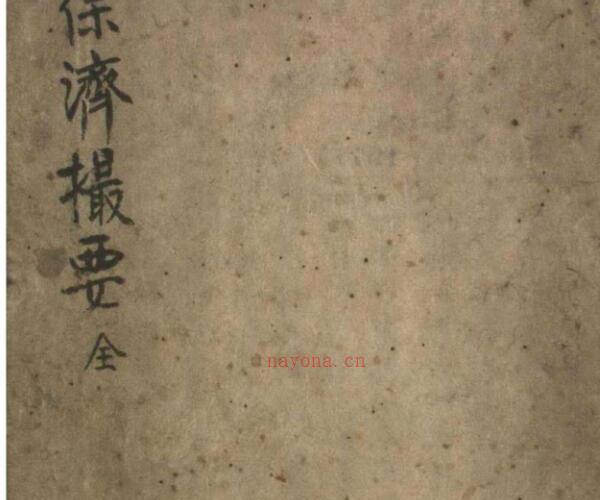 保濟撮要
全
nayona.cn